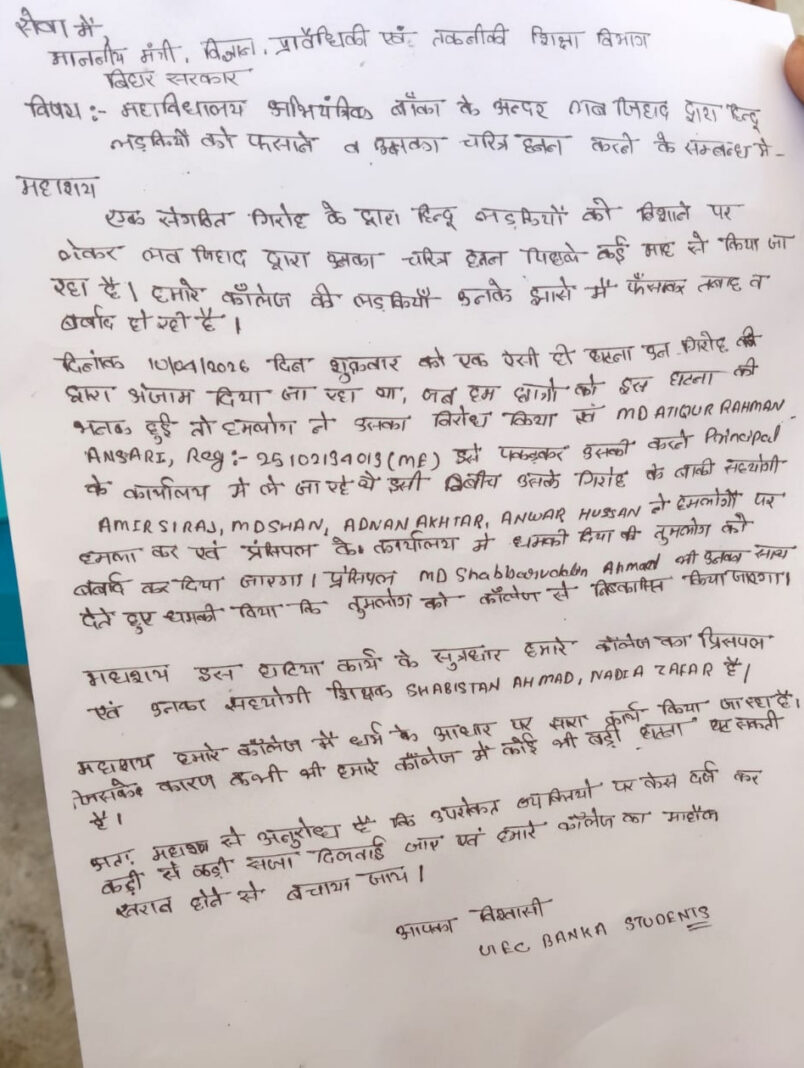 सेवा में,
माननीय मंत्री, विज्ञान, प्रावैधिकी एवं तकनीकी शिक्षा विभाग
बिहार सरकार
विषय :- महाविधालय अभियंत्रिक बाँका के अन्दर लव जिहाद द्वारा हिन्दू
लड़कियों को फसाने व उसका चरित्र हनन करने के सम्बन्ध मे -
महाशय
एक संगठित गिरोह के द्वारा हिन्दू लड़कियों को निशाने पर
लेकर लव जिहाद द्वारा उनका चरित्र हनन पिछले कई माह से किया जा
रहा है। हमारे कॉलेज की लड़कियाँ उनके झासे में फँसकर तबाह व
बर्बाद हो रही है।
दिनांक 10/04/2026 दिन शुक्रवार को एक ऐसी ही घटना उन गिरोह की
द्वारा अंजाम दिया जा रहा था, जब हम लोगो को इस घटना की
भनक हुई तो हमलोग ने उसका विरोध किया एवं MD ATIQUR RAHMAN
ANSARI, Reg :- 25102134013 (ME) इसे पकड़कर उसकी करते Principal
के कार्यालय मे ले जा रहे थे इसी बीच उसके गिरोह के बाकी सहयोगी
AMIR SIRAJ, MD SHAN, ADNAN AKHTAR, ANWAR HUSSAN ने हमलोगों पर
हमला कर एवं प्रंसिपल के कार्यालय मे धमकी दिया की तुमलोग को
बर्बाद कर दिया जाएगा। प्रंसिपल MD Ahmad भी उनका साथ
देते हुए धमकी दिया कि तुमलोग को कॉलेज से किया जाएगा।
महाशय इस घटिया कार्य के सुत्रधार हमारे कॉलेज का प्रिंसपल
एवं उनका सहयोगी शिक्षक SHABISTAN AHMAD, NADIA ZAFAR है।
महाशय हमारे कॉलेज में धर्म के आधार पर सारा कार्य किया जा रहा है।
जिसके कारण कभी भी हमारे कॉलेज में कोई भी बड़ी घटना घट सकती
है।
अतः महाशय से अनुरोध है कि उपरोक्त व्यक्तियो पर केस दर्ज कर
कड़ी से कड़ी सजा दिलवाई जाए एवं हमारे कॉलेज का माहौल
खराब होने से बचाया जाय।
आपका विश्वासी
GEC BANKA STUDENTS